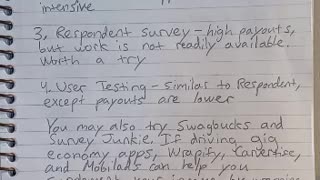 intensive
3. Respondent survey - high payouts,
but work is not readily available.
Worth a try
4. User Testing - Similar to Respondent,
except payouts are lower
You may also try Swagbucks and
Survey Junkie. If driving gig
economy apps, Wrapify, Carvertise,
and Mobilads can help you